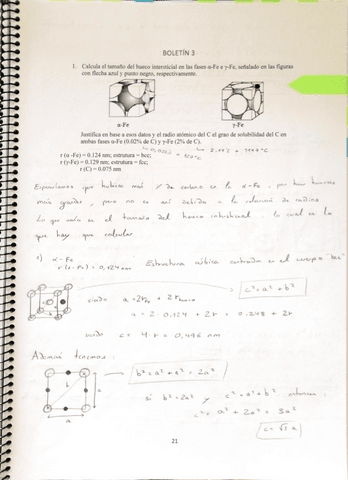 BOLETÍN 3
1. Calcula el tamaño del hueco intersticial en las fases α-Fe e γ-Fe, señalado en las figuras
con flecha azul y punto negro, respectivamente.
α-Fe
γ-Fe
Justifica en base a esos datos y el radio atómico del C el grado de solubilidad del C en
ambas fases α-Fe (0.02% de C) y γ-Fe (2% de C).
r (α -Fe) = 0.124 nm; estrutura = bcc;
r (γ-Fe) = 0.129 nm; estrutura = fcc;
r (C) = 0.075 nm
Esperaríamos que hubiese más % de carbono en la α-Fe, por
más grandes, pero no es así debido a la relación de radios
Lo que varía es el tamaño del hueco intersticial, lo cual es lo
que hay que calcular
1) α - Fe
r (α-Fe) = 0,124 nm
Estructura cúbica centrada en el cuerpo bcc
c² = a² + b²
a = 2r + 2r
a = 2 · 0.124 + 2r = 0.248 + 2r
c = 4 · r = 0,496 nm
Además tenemos:
b² = a² + a² = 2a²
si b² = 2a² y c² = a² + b² entonces:
c² = a² + 2a² = 3a²
c = √3 a
b
a
a
21